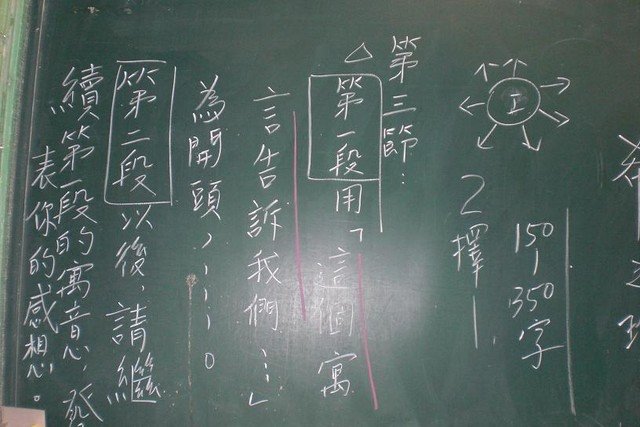 150~350字
I
2擇一
第三節：
△第一段用「這個寓
言告訴我們…」
為開頭，…。
第二段以後，請繼
續第一段的寓意，發
表你的感想。